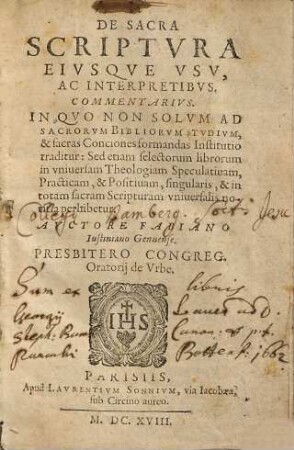 DE SACRA
SCRIPTVRA
EIVSQVE VSV,
AC INTERPRETIBVS.
COMMENTARIVS.
IN QVO NON SOLVM AD
SACRORVM BIBLIORVM STVDIVM,
& sacras Conciones formandas Institutio
traditur: Sed etiam selectorum librorum
in vniuersam Theologiam Speculatiuam,
Practicam, & Positiuam, singularis, & in
totam sacram Scripturam vniuersalis no-
perhibetur.
Collegij Bamberg. Soct. Jesu
AVCTORE FABIANO
Iustiniano Genuense.
PRESBITERO CONGREG.
Oratorij de Vrbe.
Sum ex libris
Georgij
IHS
1662
PARISIIS,
Apud LAVRENTIVM SONNIVM, via Iacobæa,
sub Circino aureo.
M. DC. XVIII.